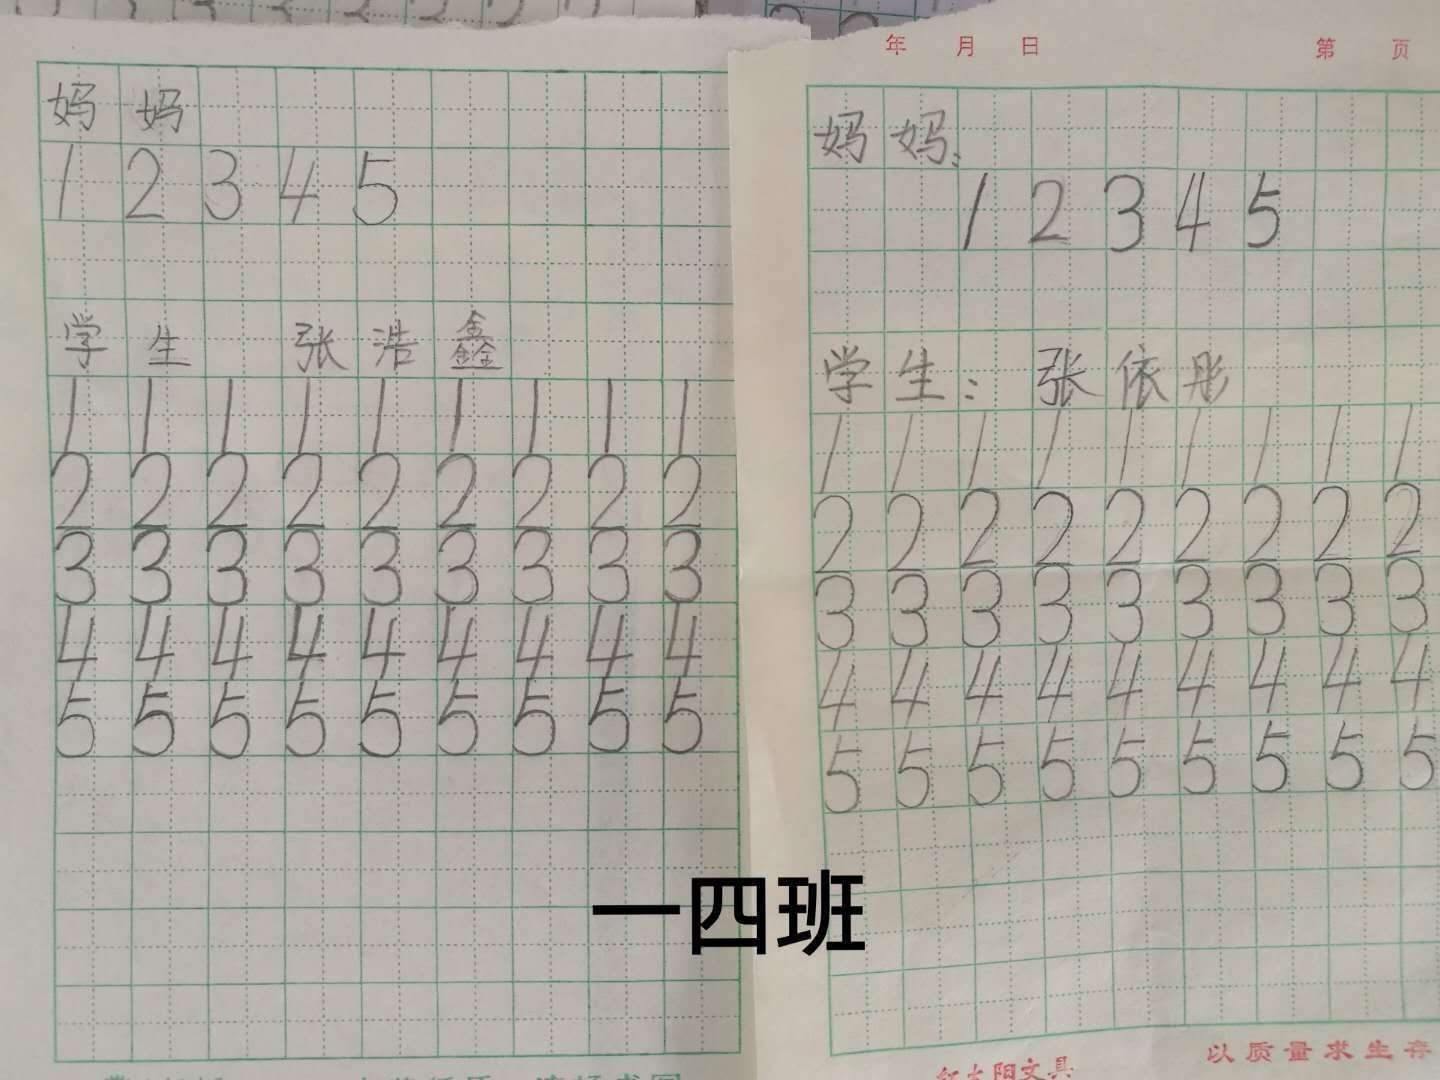 妈妈
1 2 3 4 5
学生 张浩鑫
1 1 1 1 1 1 1 1 1
2 2 2 2 2 2 2 2 2
3 3 3 3 3 3 3 3 3
4 4 4 4 4 4 4 4 4
5 5 5 5 5 5 5 5 5
年 月 日 第 页
妈妈:
1 2 3 4 5
学生: 张依彤
1 1 1 1 1 1 1 1 1
2 2 2 2 2 2 2 2 2
3 3 3 3 3 3 3 3 3
4 4 4 4 4 4 4 4 4
5 5 5 5 5 5 5 5 5
一四班
以质量求生存
红太阳文具